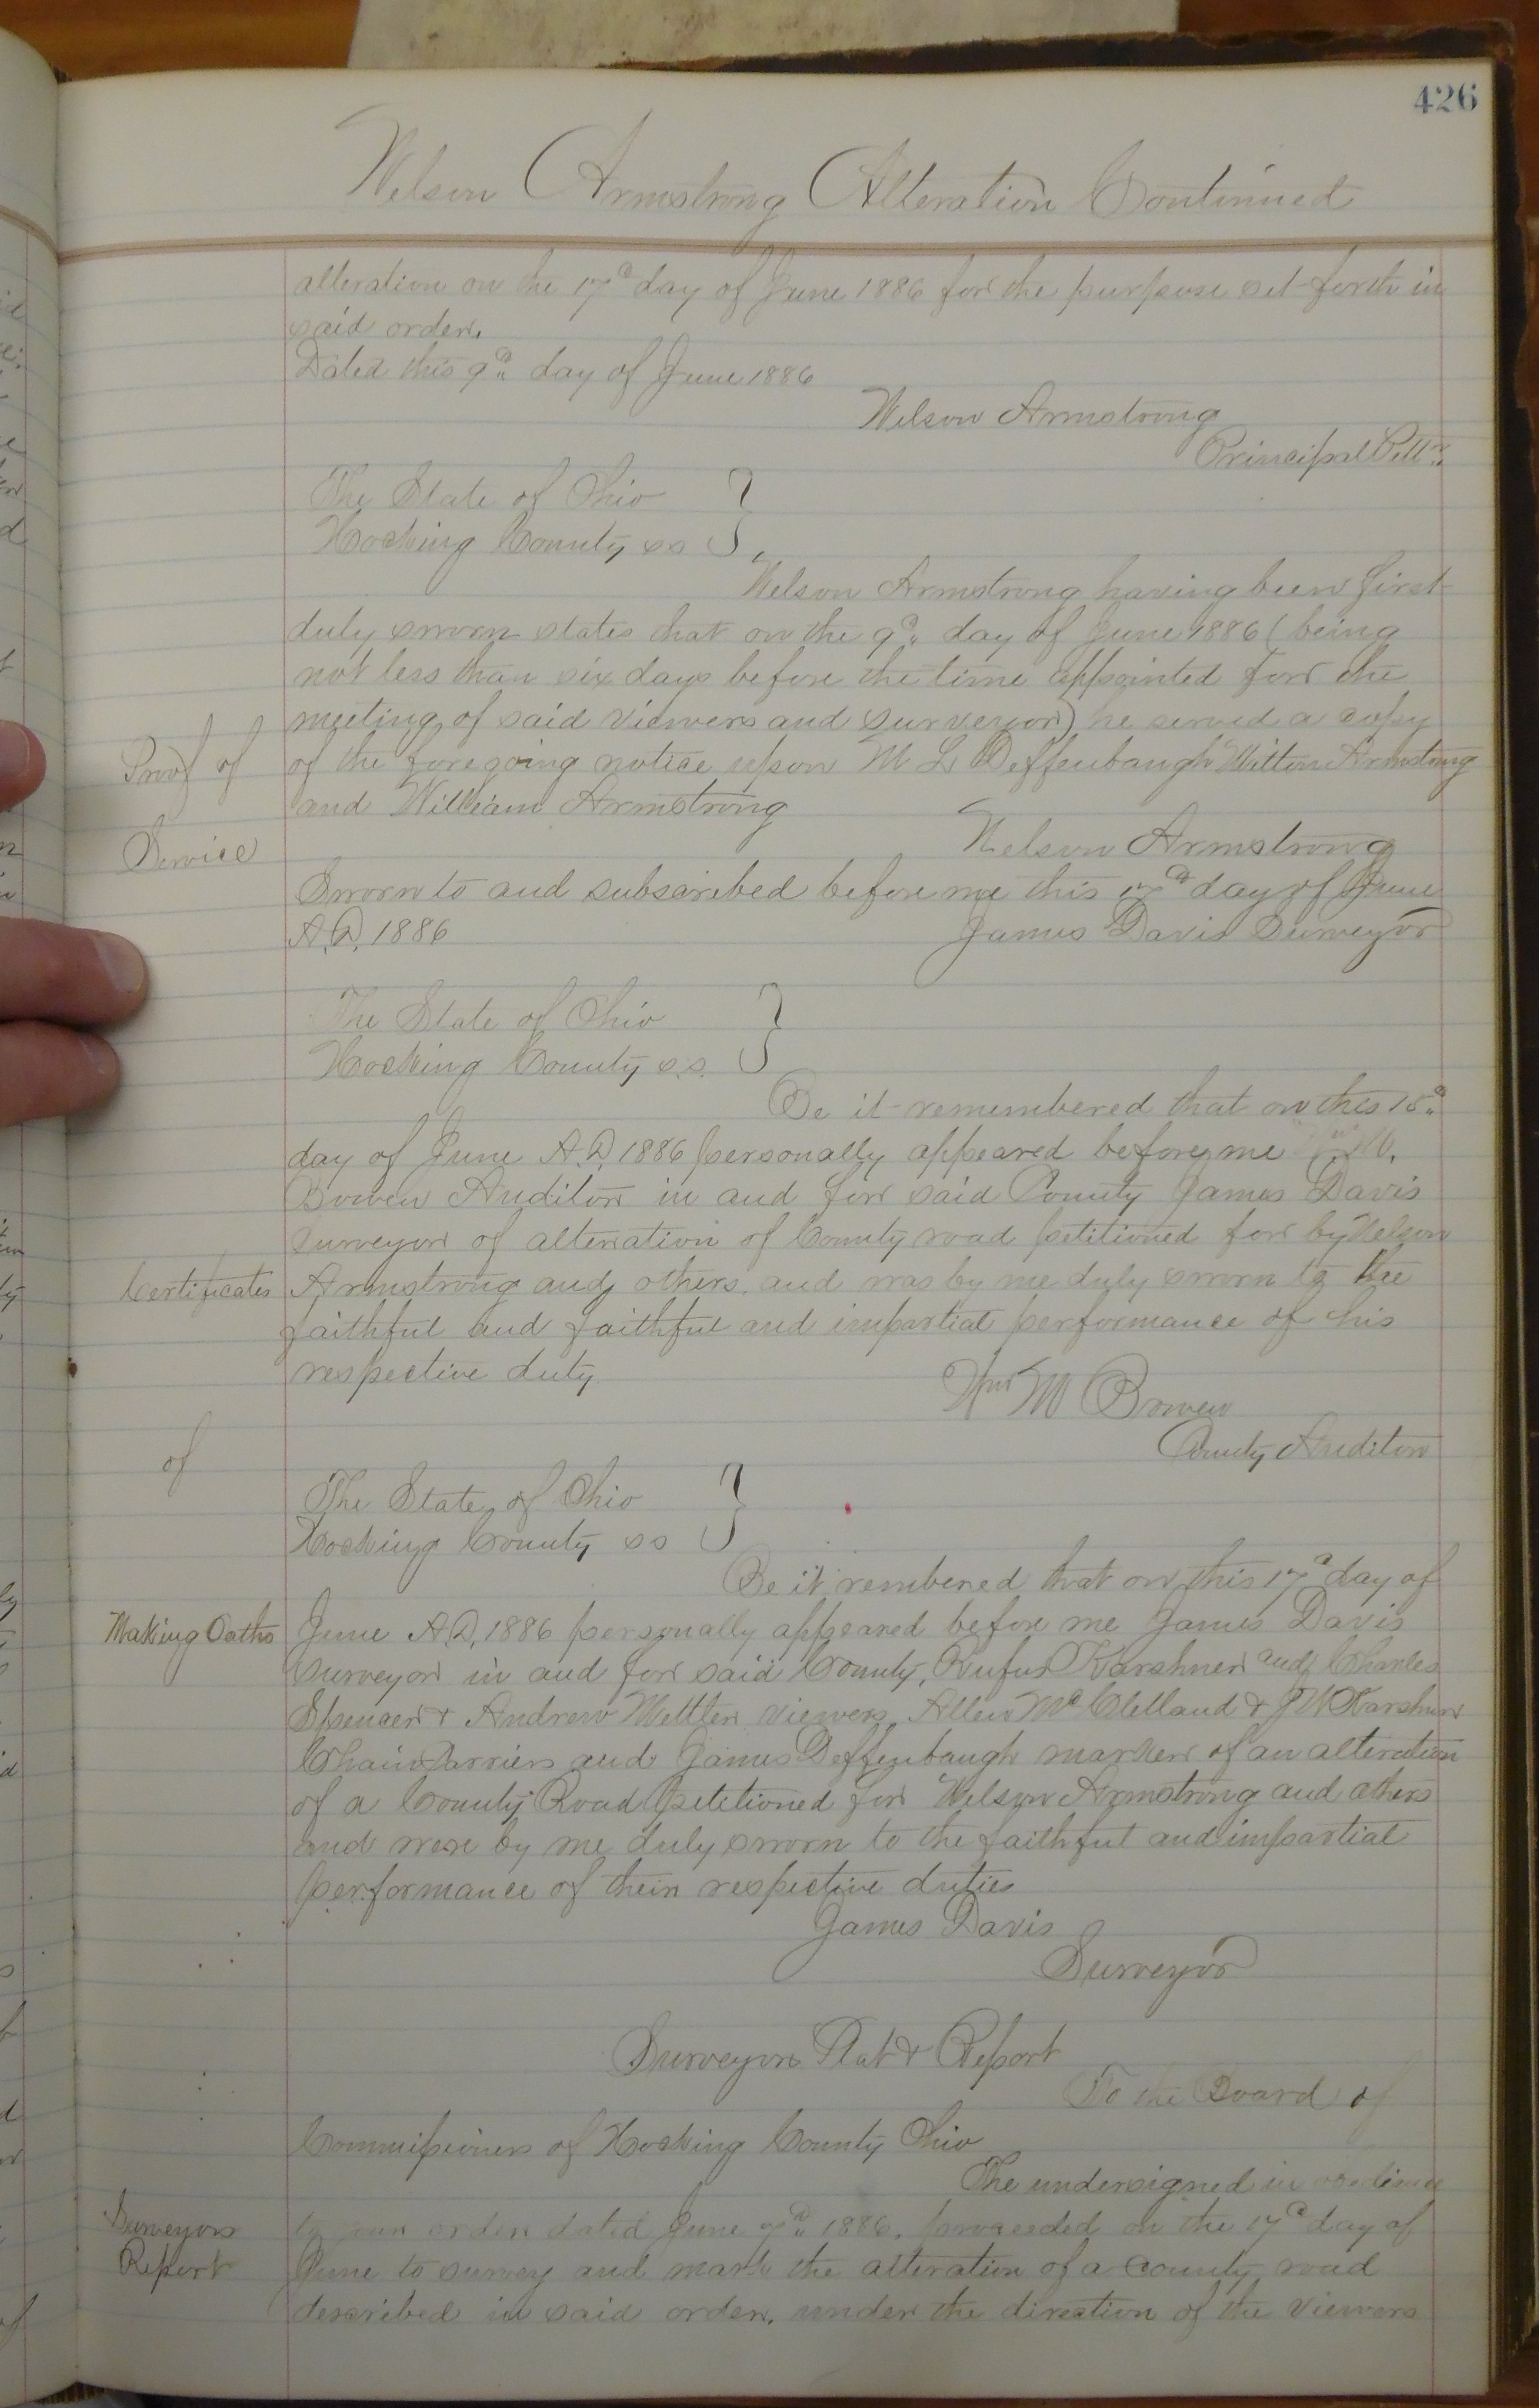 426
Nelson Armstrong Alteration Continued
alteration on the 17" day of June 1886 for the purpose set forth in
said order.
Dated this 9" day of June 1886
Nelson Armstrong
Principal Pettr.
The State of Ohio }
Hocking County ss }
Nelson Armstrong having been first
duly sworn states that on the 9" day of June 1886 (being
not less than six days before the time appointed for the
meeting of said viewers and surveyor) he served a copy
Proof of
of the foregoing notice upon M L Deffenbaugh Milton Armstrong
and William Armstrong
Service
Nelson Armstrong
Sworn to and subscribed before me this 17" day of June
A.D. 1886 James Davis Surveyor
The State of Ohio }
Hocking County s.s. }
Be it remembered that on this 15"
day of June A.D. 1886 personally appeared before me Wm M.
Bowen Auditor in and for said County James Davis
surveyor of alteration of County road petitioned for by Nelson
Certificates
Armstrong and others and was by me duly sworn to the
faithful and faithful and impartial performance of his
respective duty
Wm M Bowen
County Auditor
of
The State of Ohio }
Hocking County ss }
Be it rembered that on this 17" day of
Making Oaths
June A.D. 1886 personally appeared before me James Davis
surveyor in and for said County, Rufus Karshner and Charles
Spencer & Andrew Mettler viewers, Allen McClelland & J W Karshner
Chain Carriers and James Deffenbaugh marker of an alteration
of a County Road petitioned for Nelson Armstrong and others
and were by me duly sworn to the faithful and impartial
performance of their respective duties
James Davis
Surveyor
Surveyor Plat & Report
To the Board of
Commissioners of Hocking County Ohio
The undersigned in
Surveyors
Report
to your order dated June 7" 1886. proceeded on the 17" day of
June to survey and mark the alteration of a county road
described in said order. under the direction of the viewers